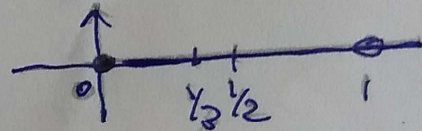 0 1/3 1/2 1